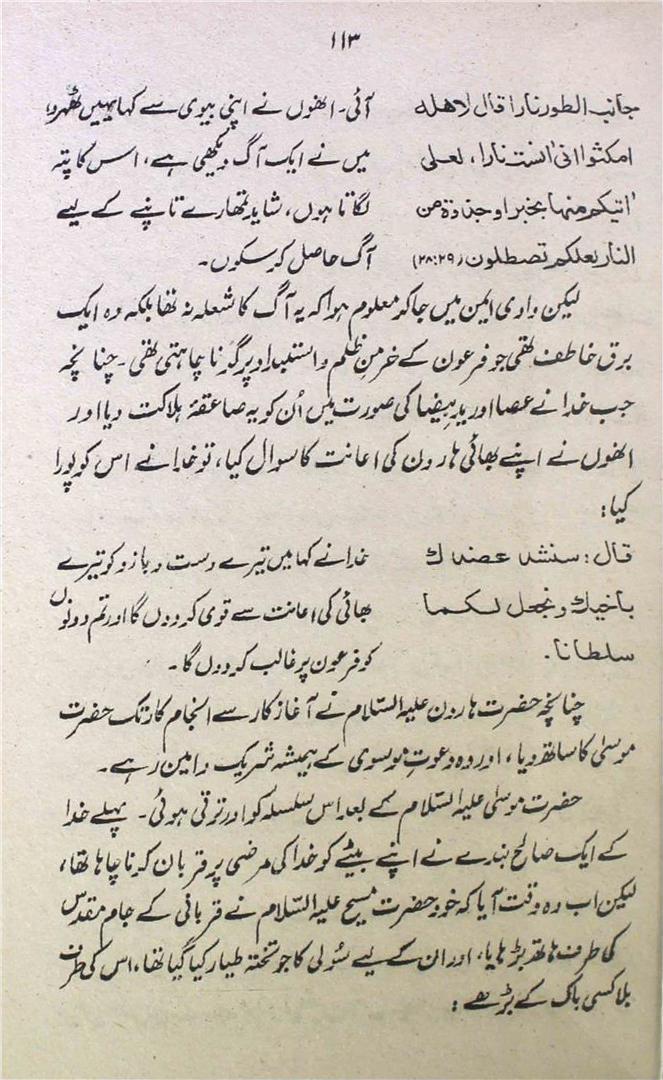 ۱۱۳
جانب الطور نارا قال لاهله
امكثوا انى اٰنست نارا، لعلى
اٰتيكم منها بخبر او جذوة من
النار لعلكم تصطلون (۲۸:۲۹)
آئی۔ انھوں نے اپنی بیوی سے کہا یہیں ٹھہرو،
میں نے ایک آگ دیکھی ہے، اس کا پتہ
لگاتا ہوں، شاید تمھارے تاپنے کے لیے
آگ حاصل کر سکوں۔
لیکن وادی ایمن میں جا کر معلوم ہوا کہ یہ آگ کا شعلہ نہ تھا بلکہ وہ ایک
برق خاطف تھی جو فرعون کے خرمنِ ظلم و استبداد پر گرنا چاہتی تھی۔ چنانچہ
جب خدا نے عصا اور یدِ بیضا کی صورت میں اُن کو یہ صاعقۂ ہلاکت دیا اور
انھوں نے اپنے بھائی ہارون کی اعانت کا سوال کیا، تو خدا نے اس کو پورا
کیا:
قال: سنشد عضدك
باخيك ونجعل لكما
سلطانا۔
خدا نے کہا میں تیرے دست و بازو کو تیرے
بھائی کی اعانت سے قوی کر دوں گا اور تم دونوں
کو فرعون پر غالب کر دوں گا۔
چنانچہ حضرت ہارون علیہ السّلام نے آغاز کار سے انجام کار تک حضرت
موسیٰ کا ساتھ دیا، اور وہ دعوتِ موسوی کے ہمیشہ شریک و امین رہے۔
حضرت موسیٰ علیہ السّلام کے بعد اس سلسلہ کو اور ترقی ہوئی۔ پہلے خدا
کے ایک صالح بندے نے اپنے بیٹے کو خدا کی مرضی پر قربان کرنا چاہا تھا،
لیکن اب وہ وقت آیا کہ خود حضرت مسیح علیہ السّلام نے قربانی کے جام مقدس
کی طرف ہاتھ بڑھایا، اور ان کے لیے سُولی کا جو تختہ طیار کیا گیا تھا، اس کی طرف
بلا کسی باک کے بڑھے: